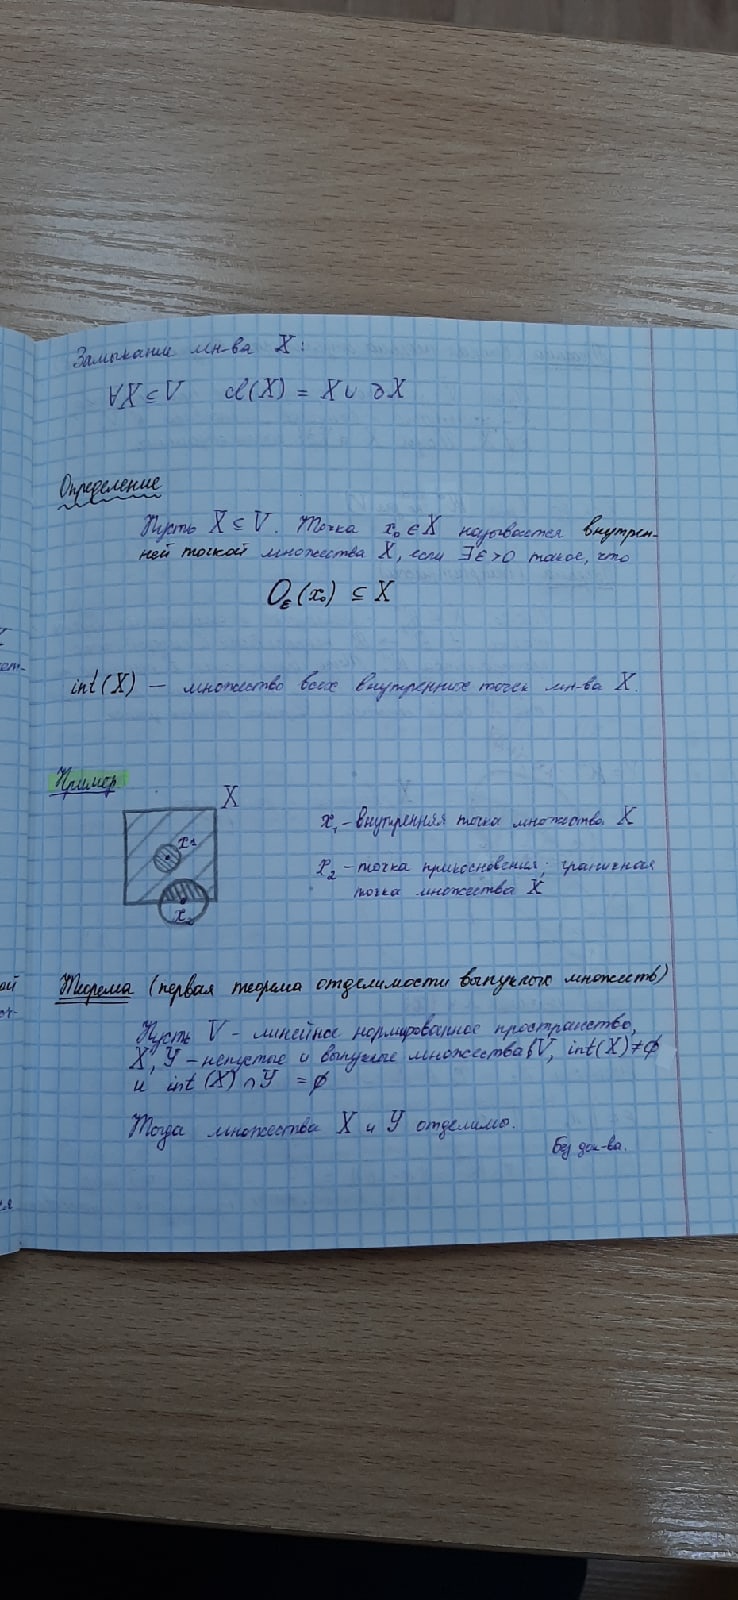 Замыкание мн-ва X:
∀X⊆V cl(X) = X ∪ ∂X
Определение
Пусть X ⊆ V. Точка x₀ ∈ X называется внутрен-
ней точкой множества X, если ∃ε>0 такое, что
Oε(x₀) ⊆ X
int(X) — множество всех внутренних точек мн-ва X.
Пример
X
x₁
x₂
x₁ - внутренняя точка множества X
x₂ - точка прикосновения, граничная
точка множества X
Теорема (первая теорема отделимости выпуклых множеств)
Пусть V - линейное нормированное пространство,
X, Y - непустые и выпуклые множества в V, int(X)≠∅
и int(X)∩Y = ∅
Тогда множества X и Y отделимы.
Без док-ва.